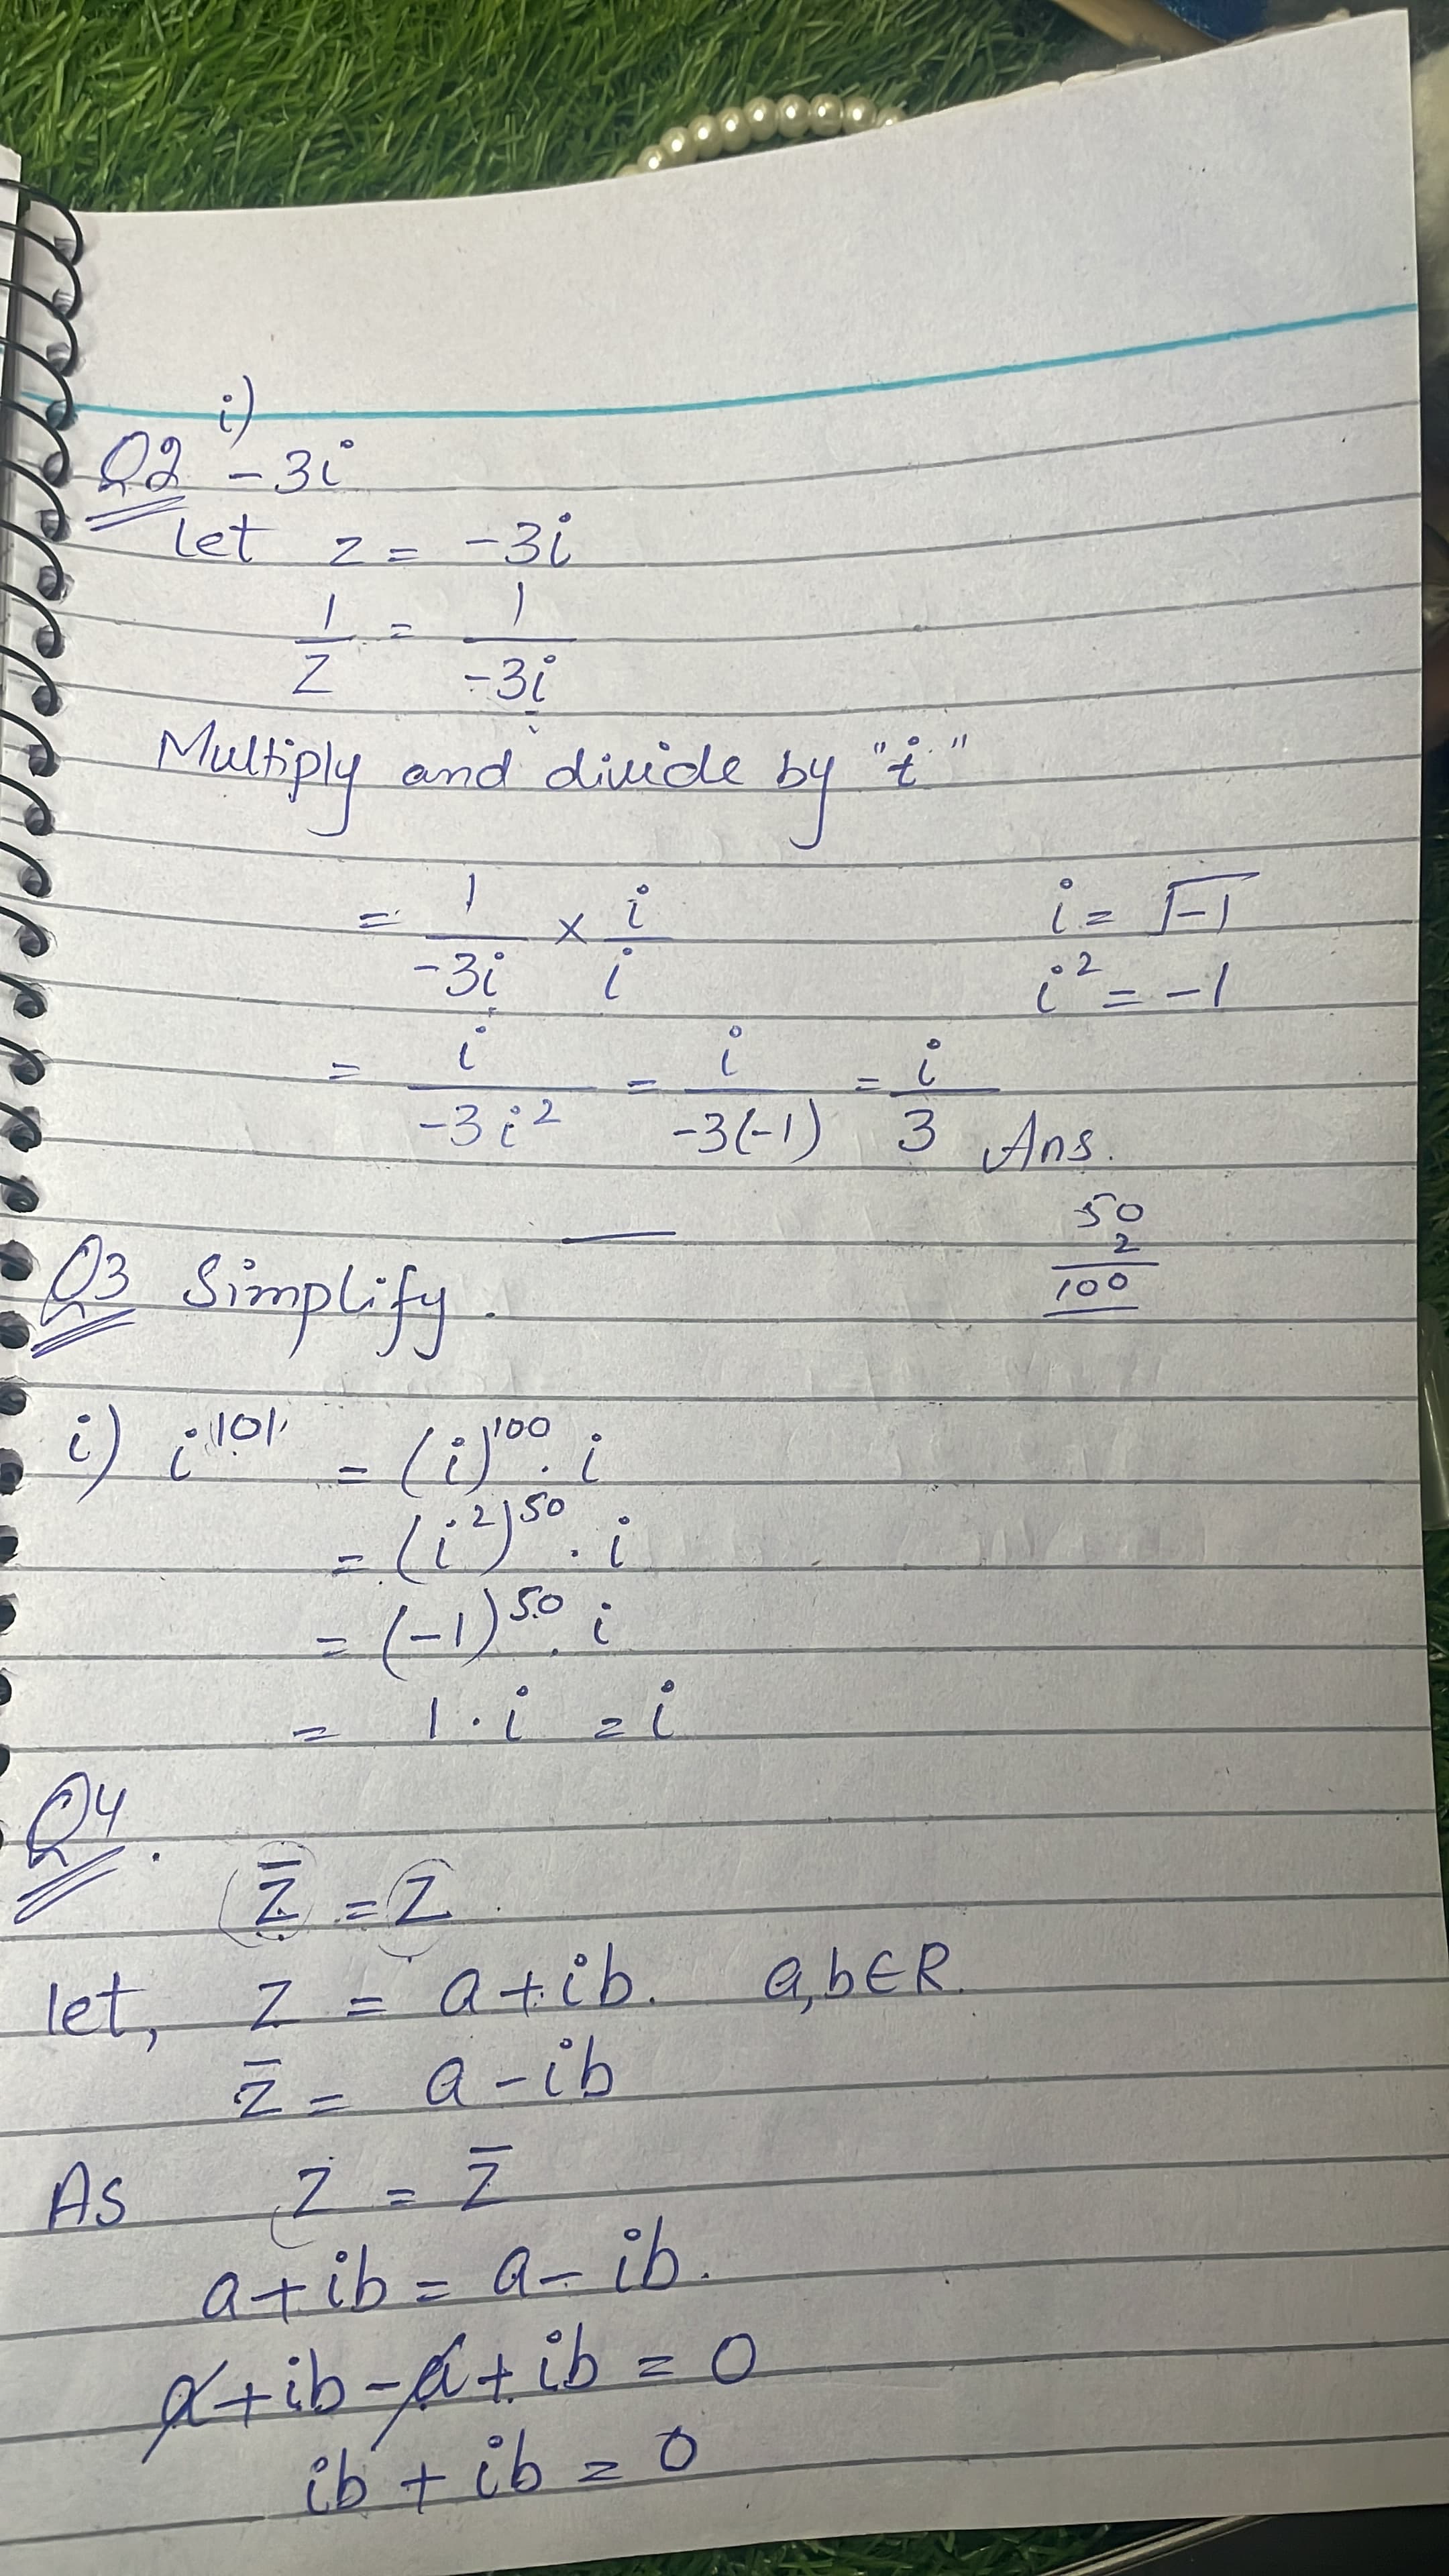 i)
Q2 -3i
Let z = -3i
1/z = 1/-3i
Multiply and divide by "i"
= 1/-3i × i/i i = √-1
i² = -1
= i/-3i² = i/-3(-1) = i/3 Ans.
50
2
100
Q3 Simplify.
i) i¹⁰¹ = (i)¹⁰⁰ . i
= (i²)⁵⁰ . i
= (-1)⁵⁰ . i
= 1 . i = i
Q4.
z̅ = z
let, z = a + ib. a, b ∈ R.
z̅ = a - ib
As z = z̅
a + ib = a - ib.
a + ib - a + ib = 0
ib + ib = 0